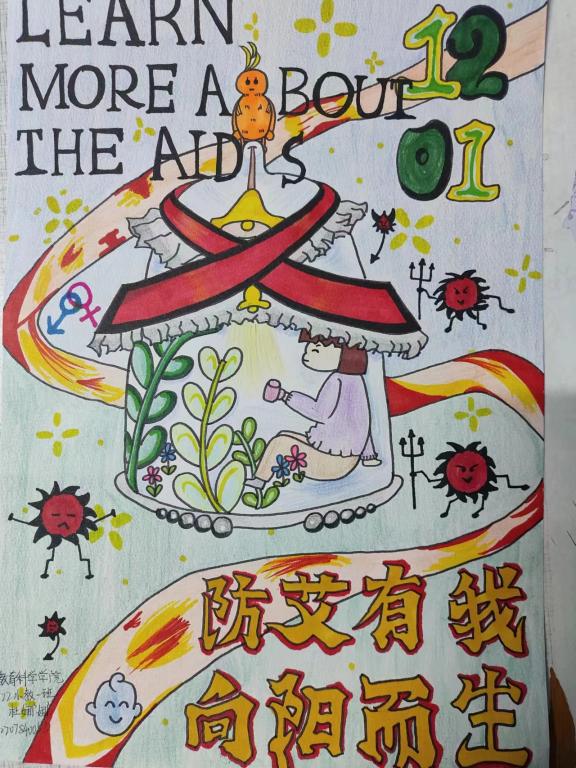 LEARN
MORE ABOUT
THE AIDS
12
01
防艾有我
向阳而生
教育科学学院
22小教一班